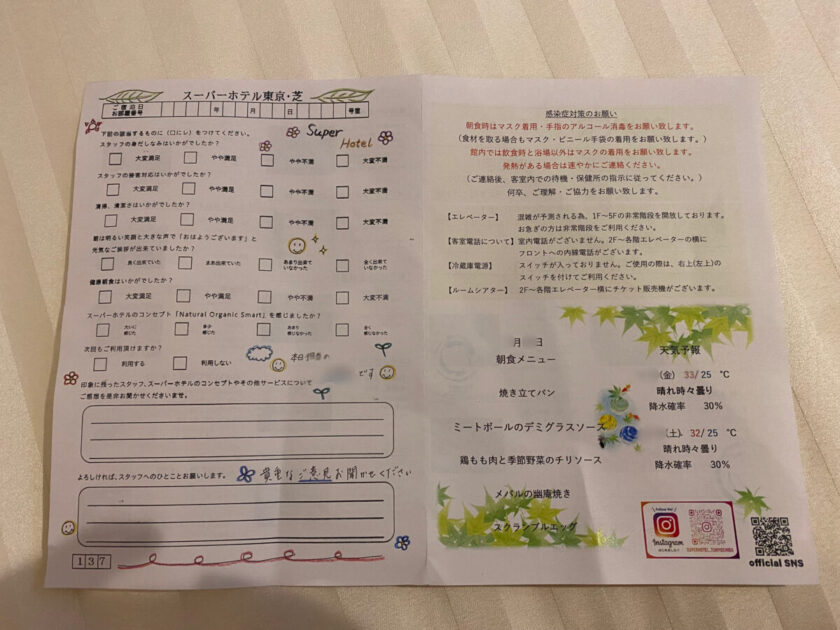 スーパーホテル東京・芝
ご宿泊日
お部屋番号
年 月 日 号室
Super
Hotel
下記の該当するものに(□にレ)をつけてください。
スタッフの身だしなみはいかがでしたか?
大変満足 やや満足 やや不満 大変不満
スタッフの接客対応はいかがでしたか?
大変満足 やや満足 やや不満 大変不満
清掃、清潔さはいかがでしたか?
大変満足 やや満足 やや不満 大変不満
朝は明るい笑顔と大きな声で「おはようございます」と
元気なご挨拶が出来ていましたか?
良く出来ていた まあ出来ていた あまり出来て いなかった 全く出来て いなかった
健康朝食はいかがでしたか?
大変満足 やや満足 やや不満 大変不満
スーパーホテルのコンセプト「Natural Organic Smart」を感じましたか?
大いに 感じた 多少 感じた あまり 感じなかった 全く 感じなかった
次回もご利用頂けますか?
利用する 利用しない
本日担当の
です
印象に残ったスタッフ、スーパーホテルのコンセプトやその他サービスについて
ご感想を是非お聞かせくださいませ。
よろしければ、スタッフへのひとことお願いします。
貴重なご意見お聞かせください
137
感染症対策のお願い
朝食時はマスク着用・手指のアルコール消毒をお願い致します。
(食材を取る場合もマスク・ビニール手袋の着用をお願い致します。)
館内では飲食時と浴場以外はマスクの着用をお願い致します。
発熱がある場合は速やかにご連絡ください。
(ご連絡後、客室内での待機・保健所の指示に従ってください。)
何卒、ご理解・ご協力をお願い致します。
【エレベーター】 混雑が予測される為、1F〜5Fの非常階段を開放しております。
お急ぎの方は非常階段をご利用ください。
【客室電話について】室内電話がございません。2F〜各階エレベーターの横に
フロントへの内線電話がございます。
【冷蔵庫電源】 スイッチが入っておりません。ご使用の際は、右上(左上)の
スイッチを付けてご利用ください。
【ルームシアター】 2F〜各階エレベーター横にチケット販売機がございます。
月 日
朝食メニュー
焼き立てパン
ミートボールのデミグラスソース
鶏もも肉と季節野菜のチリソース
メバルの幽庵焼き
スクランブルエッグ
天気予報
(金) 33/ 25 ℃
晴れ時々曇り
降水確率 30%
(土) 32/ 25 ℃
晴れ時々曇り
降水確率 30%
Instagram
official SNS